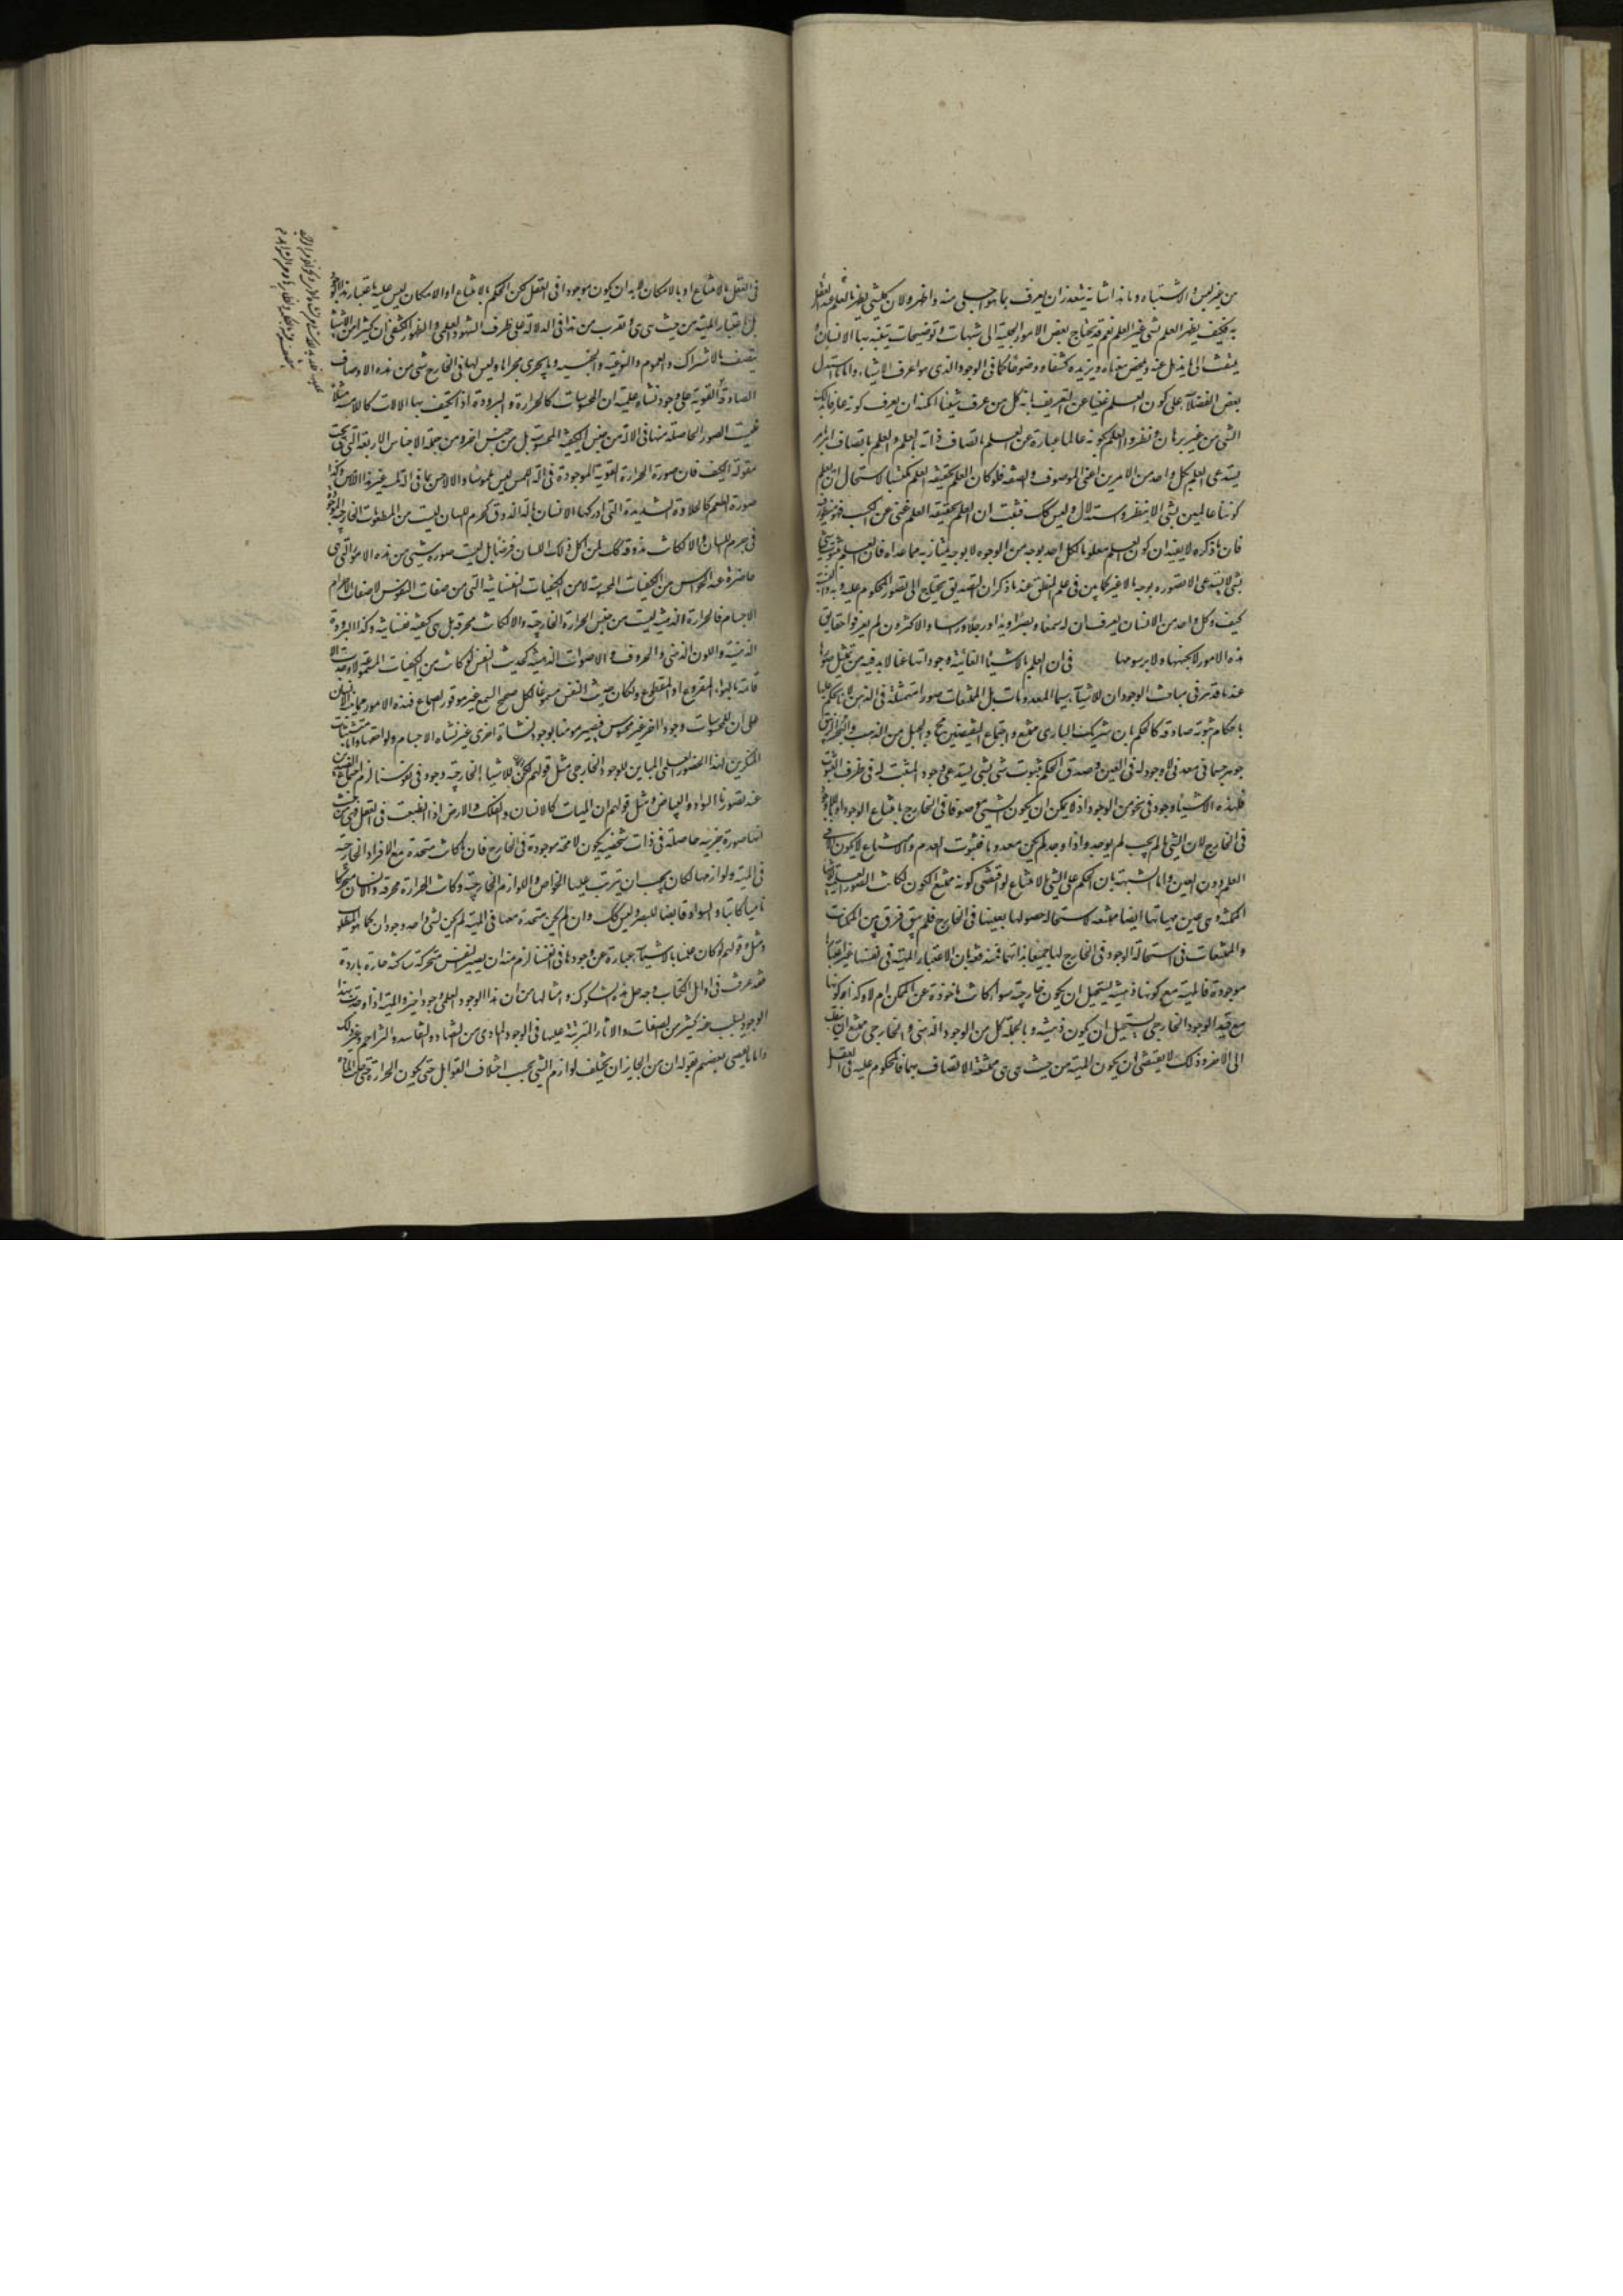 من غير لبس ولا اشتباه وما هذا شانه يتعذر ان يعرف بما هو اجلى منه واظهر ولان كل شي يظهر بالعلم عند العقل
به فكيف يظهر العلم بشي غير العلم نعم قد يحتاج بعض الامور الجلية الى تنبيهات وتوضيحات يتنبه بها الانسان و
يلتفت الى ما يذهل عنه ويلخص معناه ويزيده كشفا ووضوحا كما في الوجود الذي هو اعرف الاشياء واما ما استدل
بعض الفضلاء على كون العلم غنيا عن التعريف بانه كل من عرف شيئا امكنه ان يعرف كونه عارفا بذلك
الشي من غير برهان ونظر والعلم بكونه عالما عبارة عن العلم باتصاف ذاته بالعلم والعلم باتصاف امر بامر
يستدعي العلم بكل واحد من الامرين اعني الموصوف والصفة فلو كان العلم بحقيقة العلم مكتسبا لاستحال ان نعلم
كوننا عالمين بشي الا بنظر واستدلال وليس كك فثبت ان العلم بحقيقة العلم غني عن الكسب فهو منظور فيه
فان ما ذكره لا يفيد ان كون العلم معلوما لكل احد بوجه من الوجوه لا بوجه يمتاز به عما عداه فان العلم بثبوت شي
لشي لا يستدعي الا تصوره بوجه ما لا غير كما بين في علم المنطق عند ما ذكر ان التصديق يحتاج الى تصور المحكوم عليه وبه والنسبة
كيف وكل واحد من الانسان يعرف ان له سمعا وبصرا ويدا ورجلا وراسا والاكثرون لم يعرفوا حقايق
هذه الامور لا بكنهها ولا برسومها في ان العلم بالاشياء الغائبة وجوداتها عنا لا بد فيه من تمثل صورها
عندنا قد مر في مباحث الوجود ان للاشياء سيما المعدومات بل الممتنعات صورا متمثلة في الذهن لانا نحكم عليها
باحكام ثبوتية صادقة كالحكم بان شريك الباري ممتنع واجتماع النقيضين محال والجبل من الذهب والبحر من الزيبق
جوهر جسماني معدني لا وجود له في العين وصدق الحكم بثبوت شي لشي يستدعي وجود المثبت له في ظرف الثبوت
فلهذه الاشياء وجود في نحو من الوجود اذ لا يمكن ان يكون الشي موصوفا في الخارج بامتناع الوجود او باللاوجود
في الخارج لان الشي ما لم يجب لم يوجد واذا وجد لم يكن معدوما فثبوت العدم والامتناع لا يكون الا في
العلم دون العين واما الشبهة بان الحكم على الشي بالامتناع لو اقتضى كونه ممتنع الكون لكانت الصور العقلية للاشياء
الممكنة وهي عين مهياتها ايضا ممتنعة لاستحالة حصولها بعينها في الخارج فلم يبق فرق بين الممكنات
والممتنعات في استحالة الوجود في الخارج لها جميعا بذاتهما فمندفعة بان الاعتبار المهية في نفسها غير اعتبارها
موجودة فالمهية مع كونها ذهنية يستحيل ان يكون خارجية سواء كانت ماخوذة عن الممكن ام لا وكذا مع كونها
مع قيد الوجود الخارجي يستحيل ان يكون ذهنية وبالجملة كل من الوجود الذهني والخارجي ممتنع ان ينقلب
الى الاخر وذلك لا يقتضي ان يكون المهية من حيث هي هي ممتنعة الاتصاف بهما فالمحكوم عليه في العقل
في العقل بالامتناع او بالامكان لا بد ان يكون موجودا في العقل لكن الحكم بالامتناع او الامكان ليس عليه باعتبار هذا الوجود
بل باعتبار المهية من حيث هي هي ويقرب من هذا في الدلالة على ظرف الشهود العلمي والظهور الكشفي ان كثيرا من الاشياء
يتصف بالاشتراك والعموم والنوعية والجنسية وما يجري مجراها وليس لها في الخارج شي من هذه الاوصاف
الصادقة القوية على وجود نشاة علمية ان المحسوسات كالحرارة والبرودة اذا تكيف بها الالات كاللامسة مثلا
ليست الصور الحاصلة منها في الالة من جنس الكيفية المحسوسة بل من جنس اخر ومن جملة الاجناس الاربعة التي تحت
مقولة الكيف فان صورة الحرارة القوية الموجودة في الة اللمس ليس ملموسا والا لاحس بما في الة لمسه غير هذا اللامس وكذا
صورة الطعم كالحلاوة الشديدة التي ادركها الانسان بالة الذوق كجرم اللسان ليست من المطعومات الخارجية الموجودة
في جرم اللسان والا لكانت مذوقة لك لمن اكل ذلك اللسان فرضا بل ليست صورة شي من هذه الامور التي هي
حاضرة عند الحواس من الكيفيات المحسوسة لا من الكيفيات النفسانية التي من صفات النفوس لا صفات الاجرام
الاجسام فالحرارة الذهنية ليست من جنس الحرارة الخارجية والا لكانت محرقة بل هي كيفية نفسانية وكذا البرودة
الذهنية واللون الذهني والحروف والاصوات الذهنية كحديث النفس لو كانت من الكيفيات المسموعة لا وجدت الا
قائمة بالهواء المقروع او المقطوع ولكان حديث النفس مسموعا لكل صحيح السمع غير موقور الصماخ فهذه الامور مما ينبه الانسان
على ان للمحسوسات وجودا اخر غير محسوس فيصير مومنا بوجود نشاة اخرى غير نشاة الاجسام ولواحقها واما متشبثات
المنكرين لهذا الحضور العلمي المباين للوجود الخارجي مثل قولهم لو كان للاشياء الخارجية وجود في نفوسنا لزم اجتماع الضدين
عند تصورنا السواد والبياض ومثل قولهم ان المهيات كالانسان والفلك والارض اذا انطبعت في العقل فهي من حيث
انها صورة جزئية حاصلة في ذات شخصية يكون لا محة موجودة في الخارج فان كانت متحدة مع الافراد الخارجية
في المهية ولوازمها لكان يجب ان يترتب عليها الخواص واللوازم الخارجية وكانت الحرارة محرقة والانسان متحركا
ناميا كاتبا والسواد قابضا للبصر وليس كك وان لم يكن متحدة معها في المهية لم يكن لشي واحد وجودان كما هو المطلوب
ومثل قولهم لو كان علمنا بالاشياء عبارة عن وجودها في انفسنا لزم منه ان يصير النفس متحركة ساكنة حارة باردة
فقد عرفت في اوائل الكتاب وجه حل هذه الشكوك وامثالها من ان هذا الوجود العلمي وجود اخر والمهية اذا وجدت بهذا
الوجود يسلب عنه كثير من الصفات والاثار المترتبة عليها في الوجود المادي من التضاد والتفاسد والتزاحم وغير ذلك
واما ما تفصى بعضهم بقوله ان من الجايز ان يختلف لوازم الشي بحسب اختلاف القوابل حتى يكون الحرارة متى حلت المادة